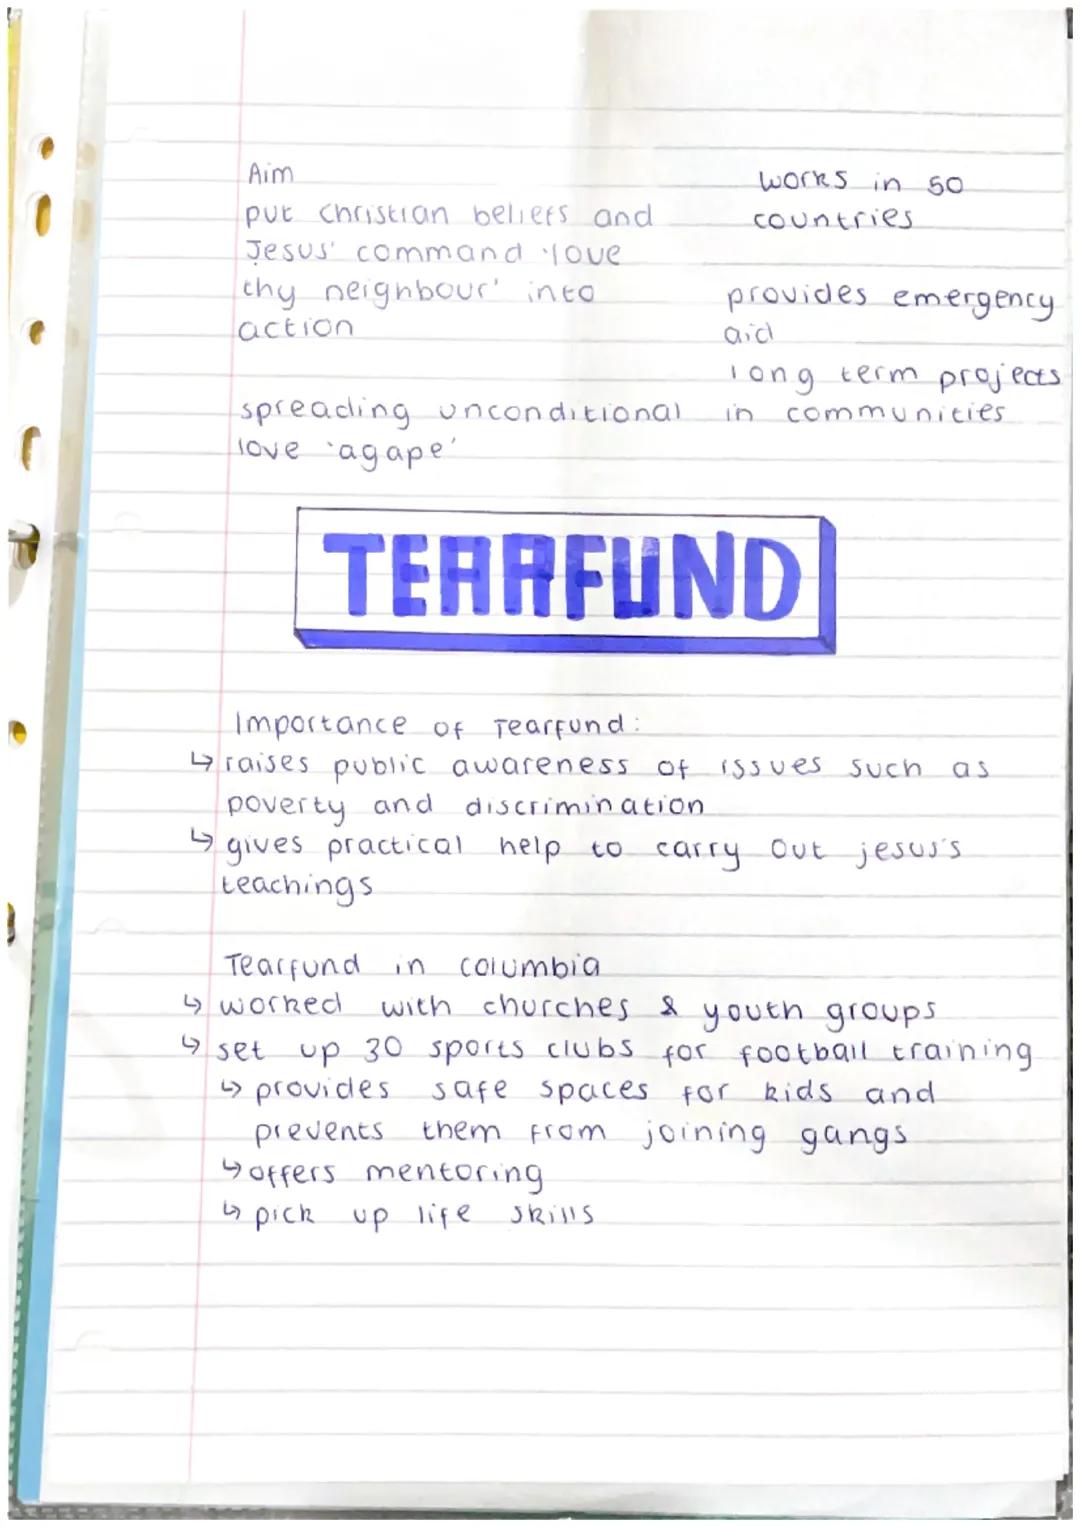 Aim
put Christian beliefs and
Jesus' command 'love
thy neighbour' into
action
spreading unconditional
love 'agape'
works in 50
countries
provides emergency
aid
long term projects
in communities
TEARFUND
Importance of Tearfund:
↳ raises public awareness of issues such as
poverty and discrimination
↳ gives practical help to carry out jesus's
teachings
Tearfund in columbia
↳ worked with churches & youth groups
↳ set up 30 sports clubs for football training
↳ provides safe spaces for kids and
prevents them from joining gangs
↳ offers mentoring
↳ pick up life skills